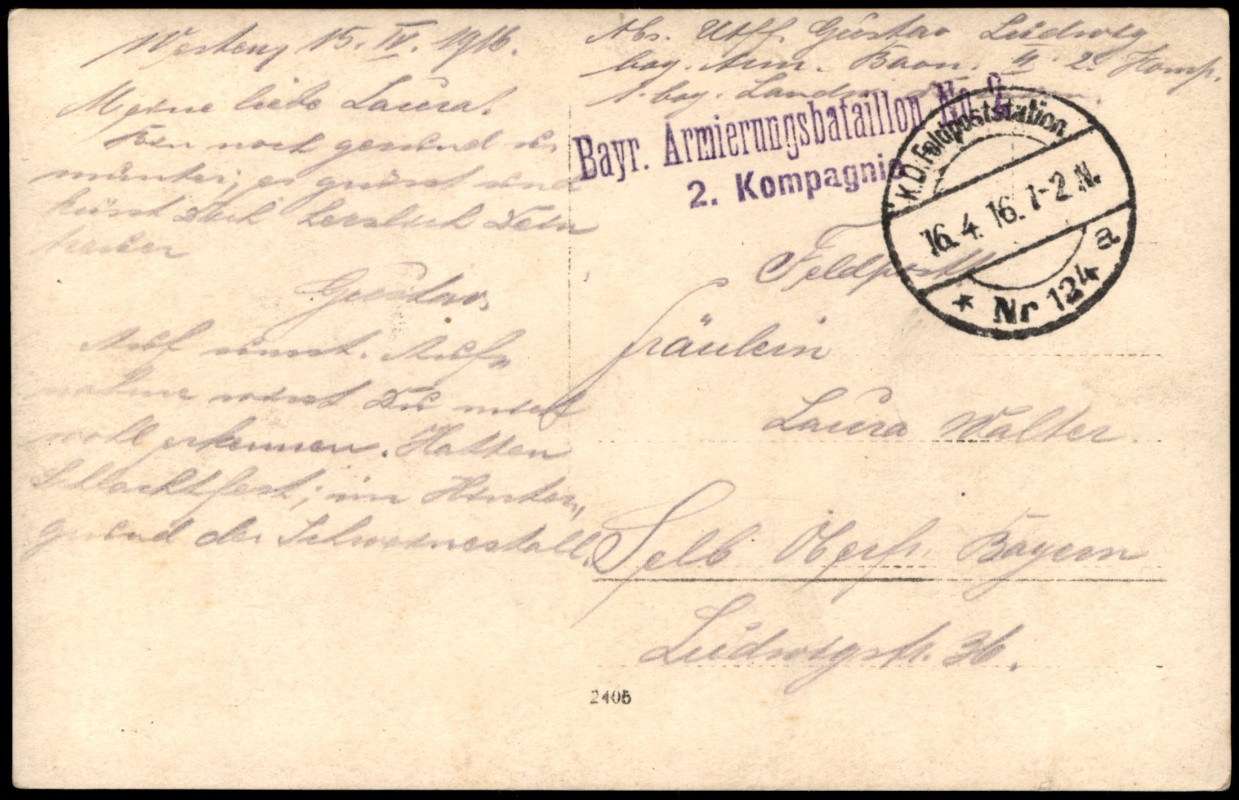 15. IV. 1916.
Meine liebe Laura!
Bin noch gesund u.
munter; es grüsst und
küsst Dich herzlich Dein
treuer
Gustav.
Auf
nahme wirst Du mich
wohl erkennen. Hatten
Schlachtfest; im Hinter„
grund der Schweinestall.
Abs. Utff. Gustav Ludwig
bay. Arm. Baon. 2. Komp.
1. bay.
Bayr. Armierungsbataillon No 2
2. Kompagnie
K.D. Feldpoststation
16.4.16. 1-2 N.
* Nr 124 a
Feldpost
Fräulein
Laura Walter
Selb Oberfr. Bayern
Ludwigstr. 36.
2405